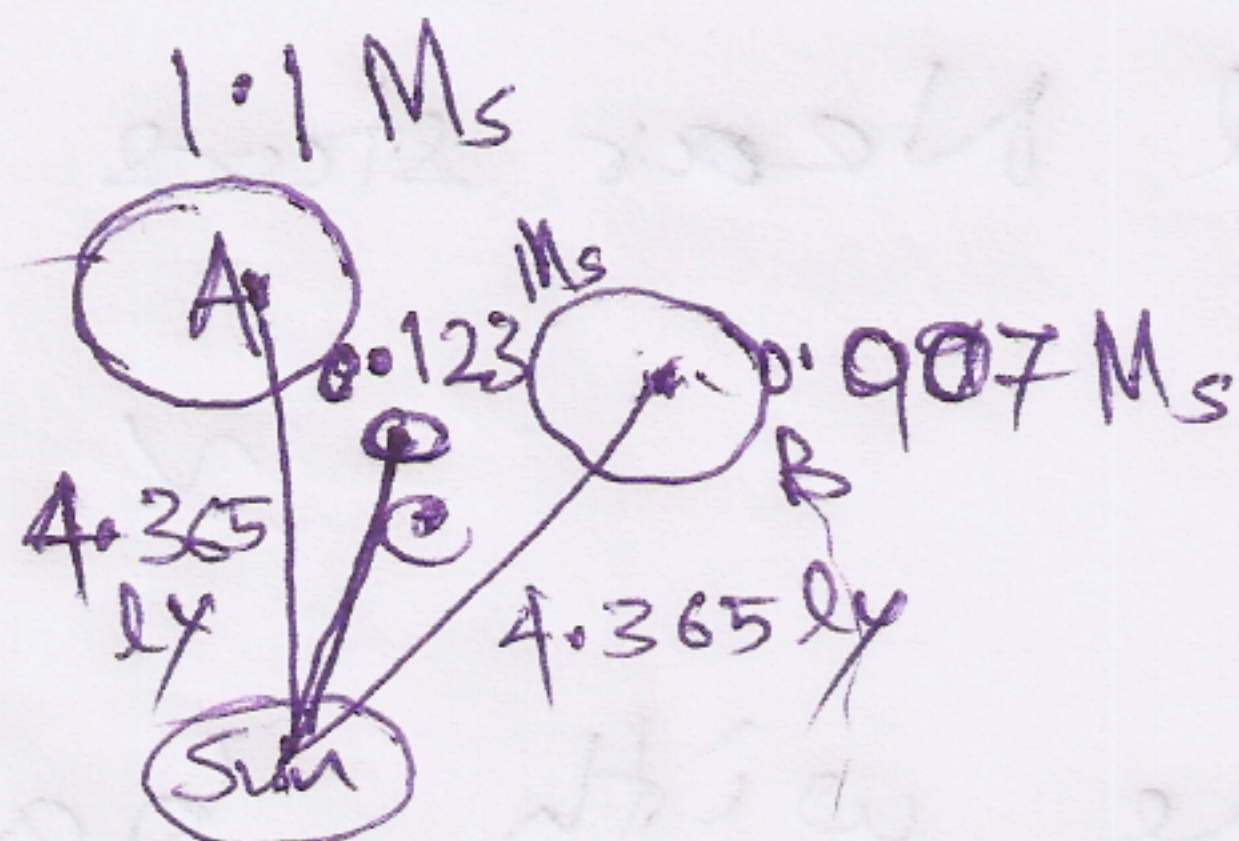 1.1 Ms
A
Ms
0.123
0.907 Ms
C
B
4.365
ly
4.365 ly
Sun